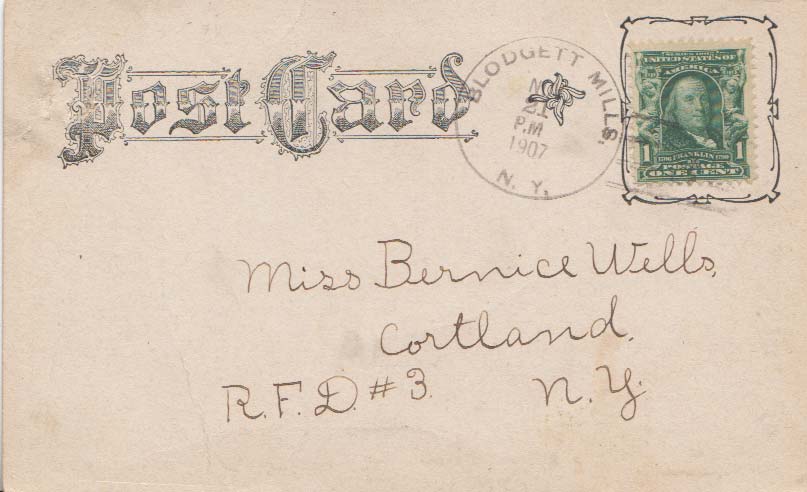 Post Card
BLODGETT MILLS,
21
P.M
1907
N. Y.
SERIES 1902
UNITED STATES OF
AMERICA
1706 FRANKLIN 1790
1 POSTAGE 1
ONE CENT
Miss Bernice Wells,
Cortland,
R.F.D. #3. N.Y.